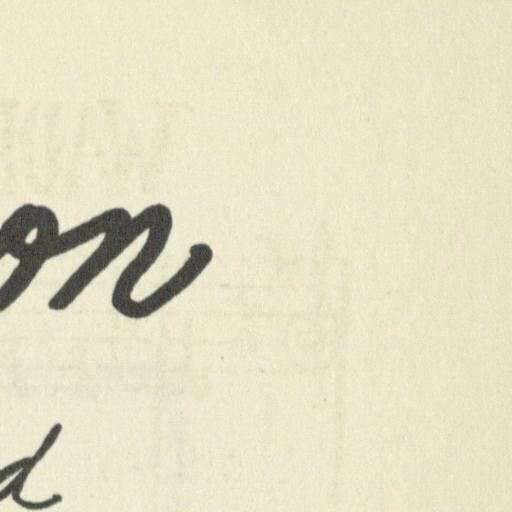 on
d